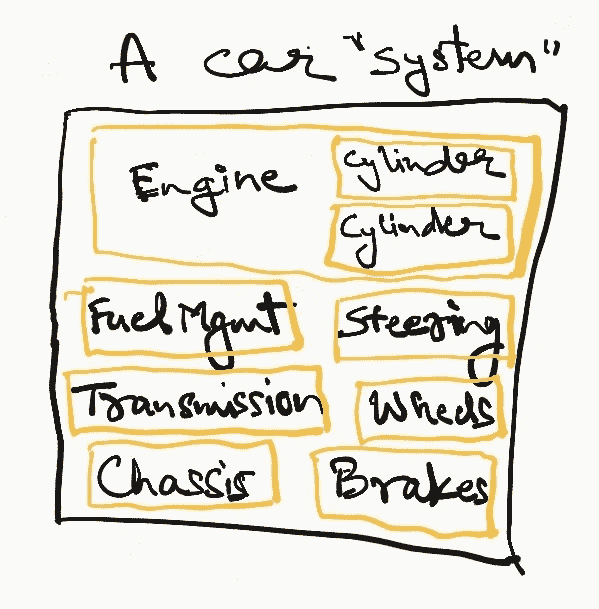 A car "system"
Engine
Cylinder
Cylinder
Fuel Mgmt
Steering
Transmission
Wheels
Chassis
Brakes